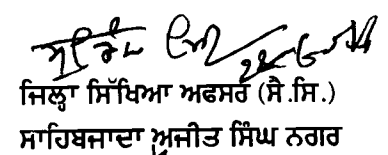 ਜਿਲ੍ਹਾ ਸਿੱਖਿਆ ਅਫਸਰ (ਸੈ.ਸਿ.)
ਸਾਹਿਬਜਾਦਾ ਅਜੀਤ ਸਿੰਘ ਨਗਰ